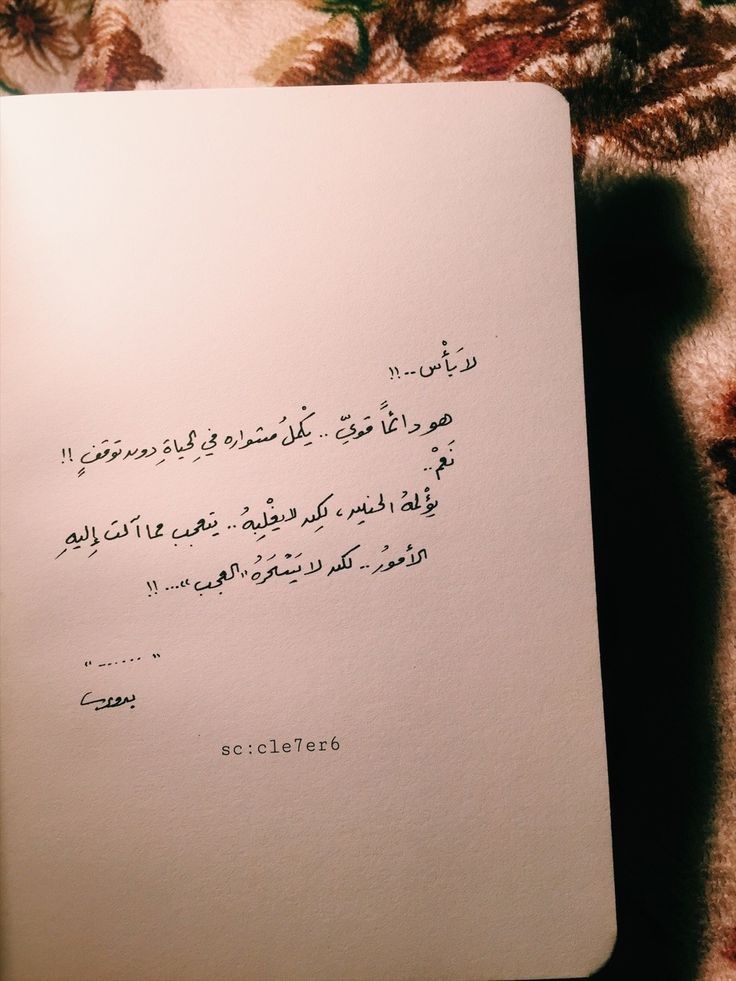 لا يَأْس..!!
هو دائماً قويّ.. يُكْملُ مشواره في الحياةِ دون توقفٍ!!
نَعَمْ..
يُؤْلمهُ الحنين، لكِن لا يغْلِبهُ.. يتعجب مما آلت إِليهِ
الأمورُ.. لكن لا يَسْحَرَهُ "العجب"...!!
"......."
sc:cle7er6